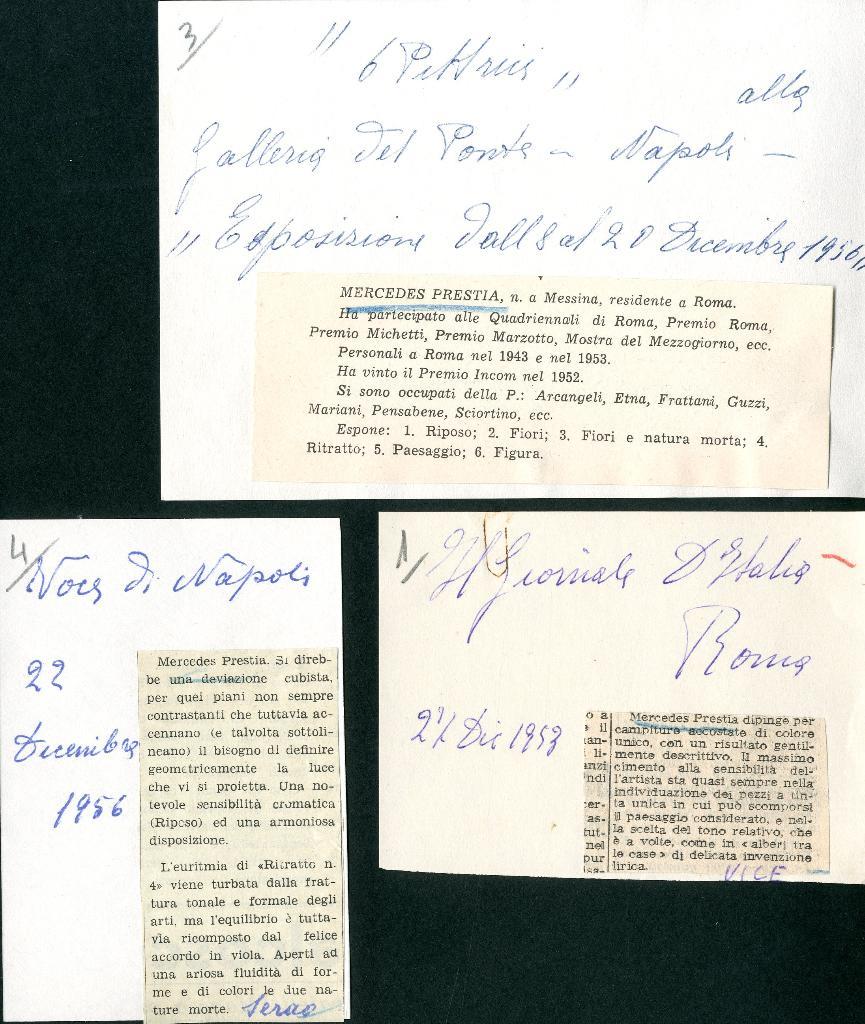 3/
" 6 Pittrici "
alla
Galleria del Ponte - Napoli -
" Esposizione dall 8 al 20 Dicembre 1956 "
MERCEDES PRESTIA, n. a Messina, residente a Roma.
Ha partecipato alle Quadriennali di Roma, Premio Roma,
Premio Michetti, Premio Marzotto, Mostra del Mezzogiorno, ecc.
Personali a Roma nel 1943 e nel 1953.
Ha vinto il Premio Incom nel 1952.
Si sono occupati della P.: Arcangeli, Etna, Frattani, Guzzi,
Mariani, Pensabene, Sciortino, ecc.
Espone: 1. Riposo; 2. Fiori; 3. Fiori e natura morta; 4.
Ritratto; 5. Paesaggio; 6. Figura.
4/
Voce di Napoli
22
Decembre
1956
Mercedes Prestia. Si direb-
be una deviazione cubista,
per quei piani non sempre
contrastanti che tuttavia ac-
cennano (e talvolta sottoli-
neano) il bisogno di definire
geometricamente la luce
che vi si proietta. Una no-
tevole sensibilità cromatica
(Riposo) ed una armoniosa
disposizione.
L'euritmia di «Ritratto n.
4» viene turbata dalla frat-
tura tonale e formale degli
arti, ma l'equilibrio è tutta-
via ricomposto dal felice
accordo in viola. Aperti ad
una ariosa fluidità di for-
me e di colori le due na-
ture morte.
Serao
1/
Il Giornale D'Italia
Roma
Dic 1953
Mercedes Prestia dipinge per
campiture accostate di colore
unico, con un risultato gentil-
mente descrittivo. Il massimo
cimento alla sensibilità del-
l'artista sta quasi sempre nella
individuazione dei pezzi a tin-
ta unica in cui può scomporsi
il paesaggio considerato, e nel-
la scelta del tono relativo, che
è a volte, come in «alberi tra
le case» di delicata invenzione
lirica.
VICE